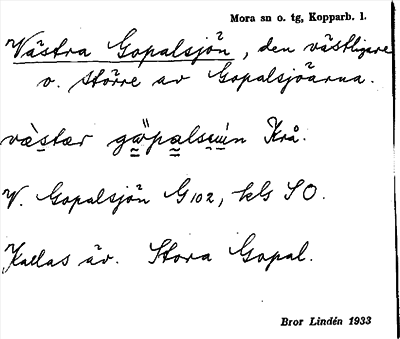 Mora sn o. tg, Kopparb. l.
Västra Gopalsjön, den västligare
o. större av Gopalsjöarna.
Krå.
V. Gopalsjön G102, kls SO.
Kallas äv. Stora Gopal.
Bror Lindén 1933